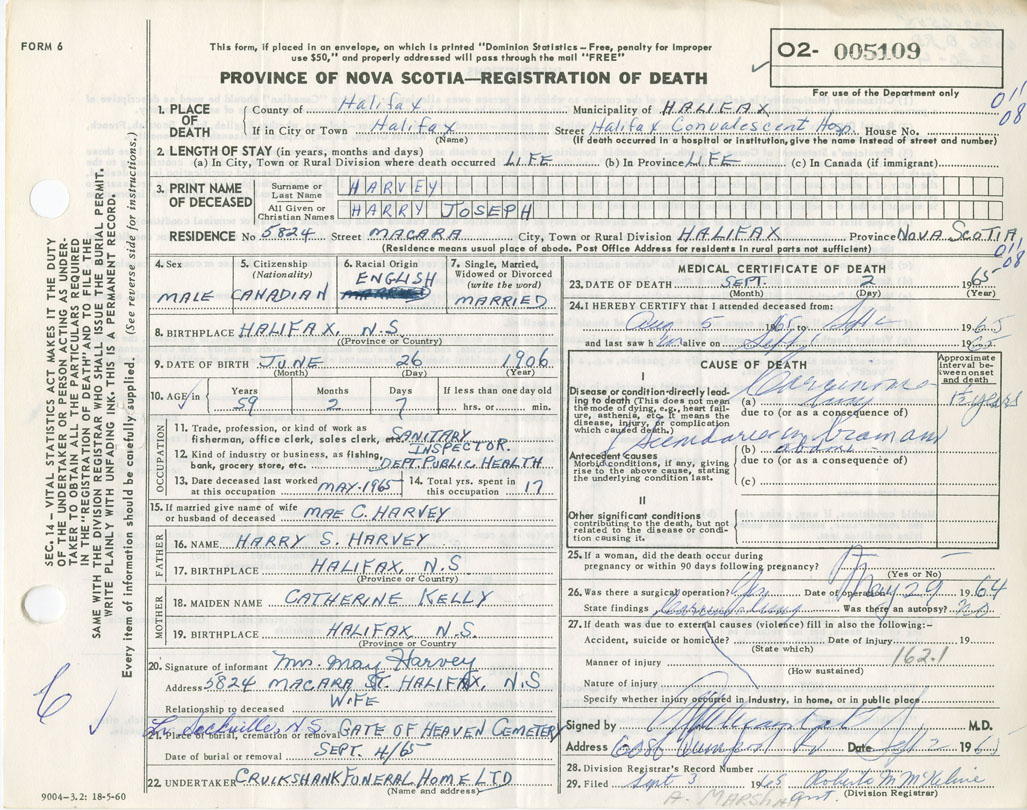 FORM 6
This form, if placed in an envelope, on which is printed "Dominion Statistics - Free, penalty for improper
use $50," and properly addressed will pass through the mail "FREE"
O2- 005109
PROVINCE OF NOVA SCOTIA—REGISTRATION OF DEATH
For use of the Department only
011
08
1. PLACE OF DEATH
County of Halifax Municipality of HALIFAX
If in City or Town Halifax Street Halifax Convalescent Hosp. House No.
(Name) (If death occurred in a hospital or institution, give the name instead of street and number)
2. LENGTH OF STAY (in years, months and days)
(a) In City, Town or Rural Division where death occurred LIFE (b) In Province LIFE (c) In Canada (if immigrant)
3. PRINT NAME OF DECEASED
Surname or Last Name HARVEY
All Given or Christian Names HARRY JOSEPH
RESIDENCE No 5824 Street MACARA City, Town or Rural Division HALIFAX Province NOVA SCOTIA
(Residence means usual place of abode. Post Office Address for residents in rural parts not sufficient)
011
08
SEC. 14 – VITAL STATISTICS ACT MAKES IT THE DUTY
OF THE UNDERTAKER OR PERSON ACTING AS UNDER-
TAKER TO OBTAIN ALL THE PARTICULARS REQUIRED
IN THE "REGISTRATION OF DEATH" AND TO FILE THE
SAME WITH THE DIVISION REGISTRAR WHO SHALL ISSUE THE BURIAL PERMIT.
WRITE PLAINLY WITH UNFADING INK. THIS IS A PERMANENT RECORD.
Every item of information should be carefully supplied. (See reverse side for instructions.)
4. Sex
MALE
5. Citizenship
(Nationality)
CANADIAN
6. Racial Origin
ENGLISH
7. Single, Married,
Widowed or Divorced
(write the word)
MARRIED
8. BIRTHPLACE HALIFAX, N.S.
(Province or Country)
9. DATE OF BIRTH JUNE 26 1906
(Month) (Day) (Year)
10. AGE in Years Months Days If less than one day old
59 2 7 hrs. or min.
OCCUPATION
11. Trade, profession, or kind of work as
fisherman, office clerk, sales clerk, etc. SANITARY
INSPECTOR.
12. Kind of industry or business, as fishing,
bank, grocery store, etc. DEPT. PUBLIC HEALTH
13. Date deceased last worked
at this occupation MAY-1965
14. Total yrs. spent in
this occupation 17
15. If married give name of wife
or husband of deceased MAE C. HARVEY
FATHER
16. NAME HARRY S. HARVEY
17. BIRTHPLACE HALIFAX, N.S
(Province or Country)
MOTHER
18. MAIDEN NAME CATHERINE KELLY
19. BIRTHPLACE HALIFAX, N.S.
(Province or Country
20. Signature of informant Mrs. May Harvey
Address 5824 MACARA ST. HALIFAX, N.S
Relationship to deceased WIFE
Sackville, N.S.
21. Place of burial, cremation or removal GATE OF HEAVEN CEMETERY
Date of burial or removal SEPT. 4/65
22. UNDERTAKER CRUIKSHANK FUNERAL HOME LTD
(Name and address)
9004-3.2: 18-5-60
MEDICAL CERTIFICATE OF DEATH
23. DATE OF DEATH SEPT. 2 1965
(Month) (Day) (Year)
24. I HEREBY CERTIFY that I attended deceased from:
Aug 5 1965 to 1965
and last saw him alive on Sept 1 1965
CAUSE OF DEATH
Approximate
interval be-
tween onset
and death
I
Disease or condition directly lead-
ing to death (This does not mean
the mode of dying, e.g., heart fail-
ure, asthenia, etc. It means the
disease, injury, or complication
which caused death.)
(a) Carcinoma
lung
1½ years
due to (or as a consequence of)
Antecedent causes
Morbid conditions, if any, giving
rise to the above cause, stating
the underlying condition last.
(b)
due to (or as a consequence of)
(c)
II
Other significant conditions
contributing to the death, but not
related to the disease or condi-
tion causing it.
25. If a woman, did the death occur during
pregnancy or within 90 days following pregnancy?
(Yes or No)
26. Was there a surgical operation? Date of operation May 29 1964
State findings Was there an autopsy? No
27. If death was due to external causes (violence) fill in also the following:-
Accident, suicide or homicide? Date of injury 19
(State which)
162.1
Manner of injury
(How sustained)
Nature of injury
Specify whether injury occurred in industry, in home, or in public place
Signed by M.D.
Address Date 2 1965
28. Division Registrar's Record Number
29. Filed Sept 3 1965 Roberta M.
(Division Registrar)